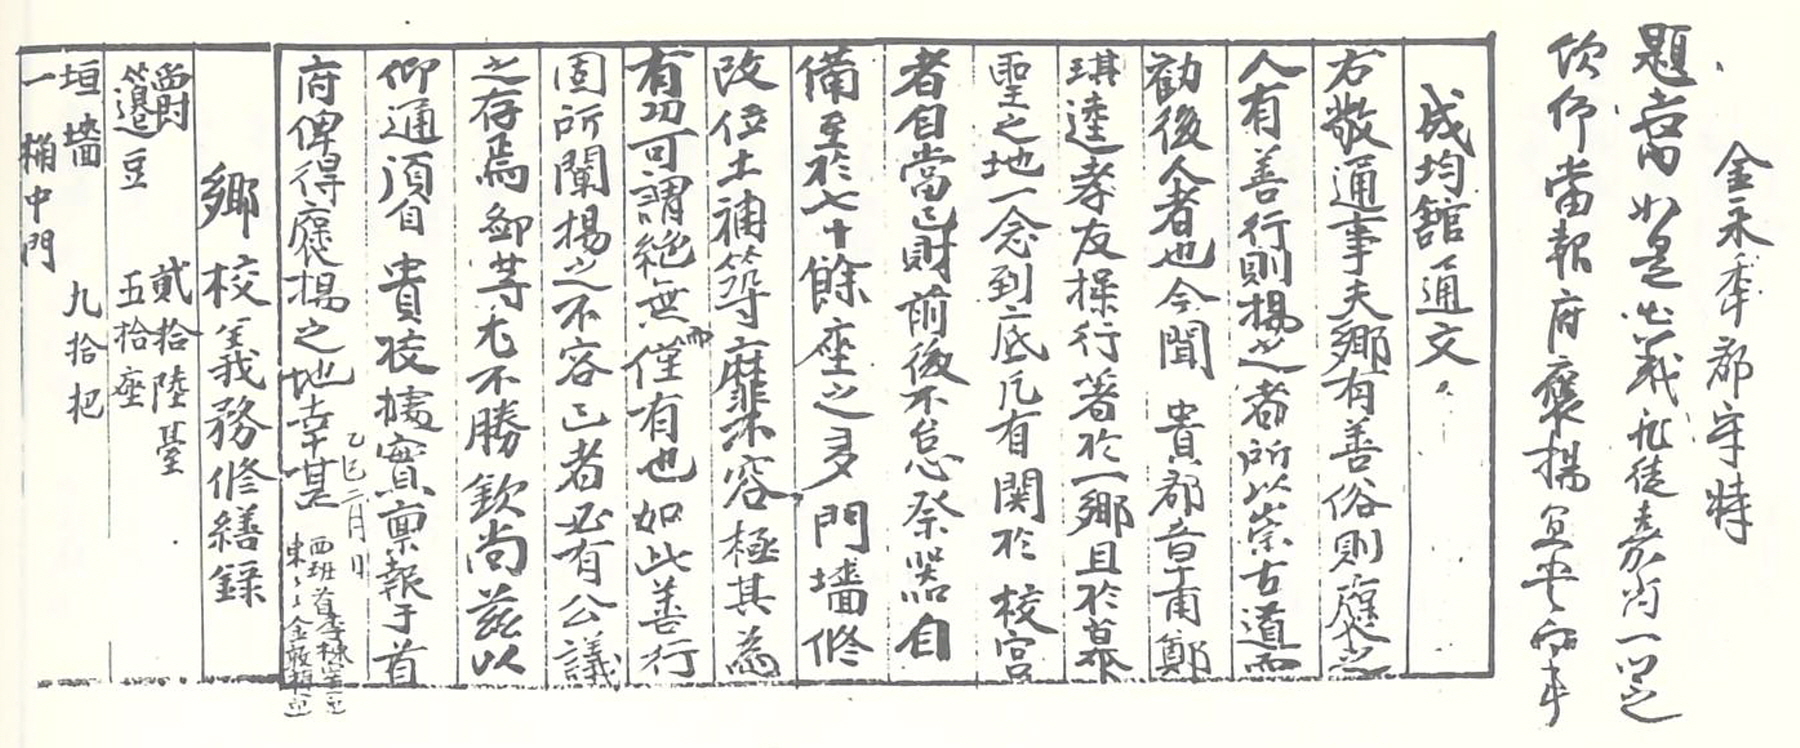 金永準郡守特
題當如是也義非徒嘉尚一鄕之
欽仰當報府褒揚宜當向事
成均館通文
右敬通事夫鄉有善俗則褒之
人有善行則揚之者所以崇古道而
勸後人者也今聞 貴郡章甫鄭
琪逵孝友操行著於一鄉且於慕
聖之地一念到底凡有関於校宮
者自當己財前後不怠祭器自
備至於七十餘座之多門墻修
改位土補等靡不容極其為
有功可謂絶無而僅有也如此善行
固所闡揚之不容已者必有公議
之存焉鄙等尤不勝欽尚茲以
仰通須自 貴校據實稟報于首
府俾得褒揚之地幸甚
乙巳二月 日
西班首李
東〻金
鄉校義務修繕錄
爵 貳拾陸臺
籩豆 五拾座
垣墻 九拾把
一桶中門